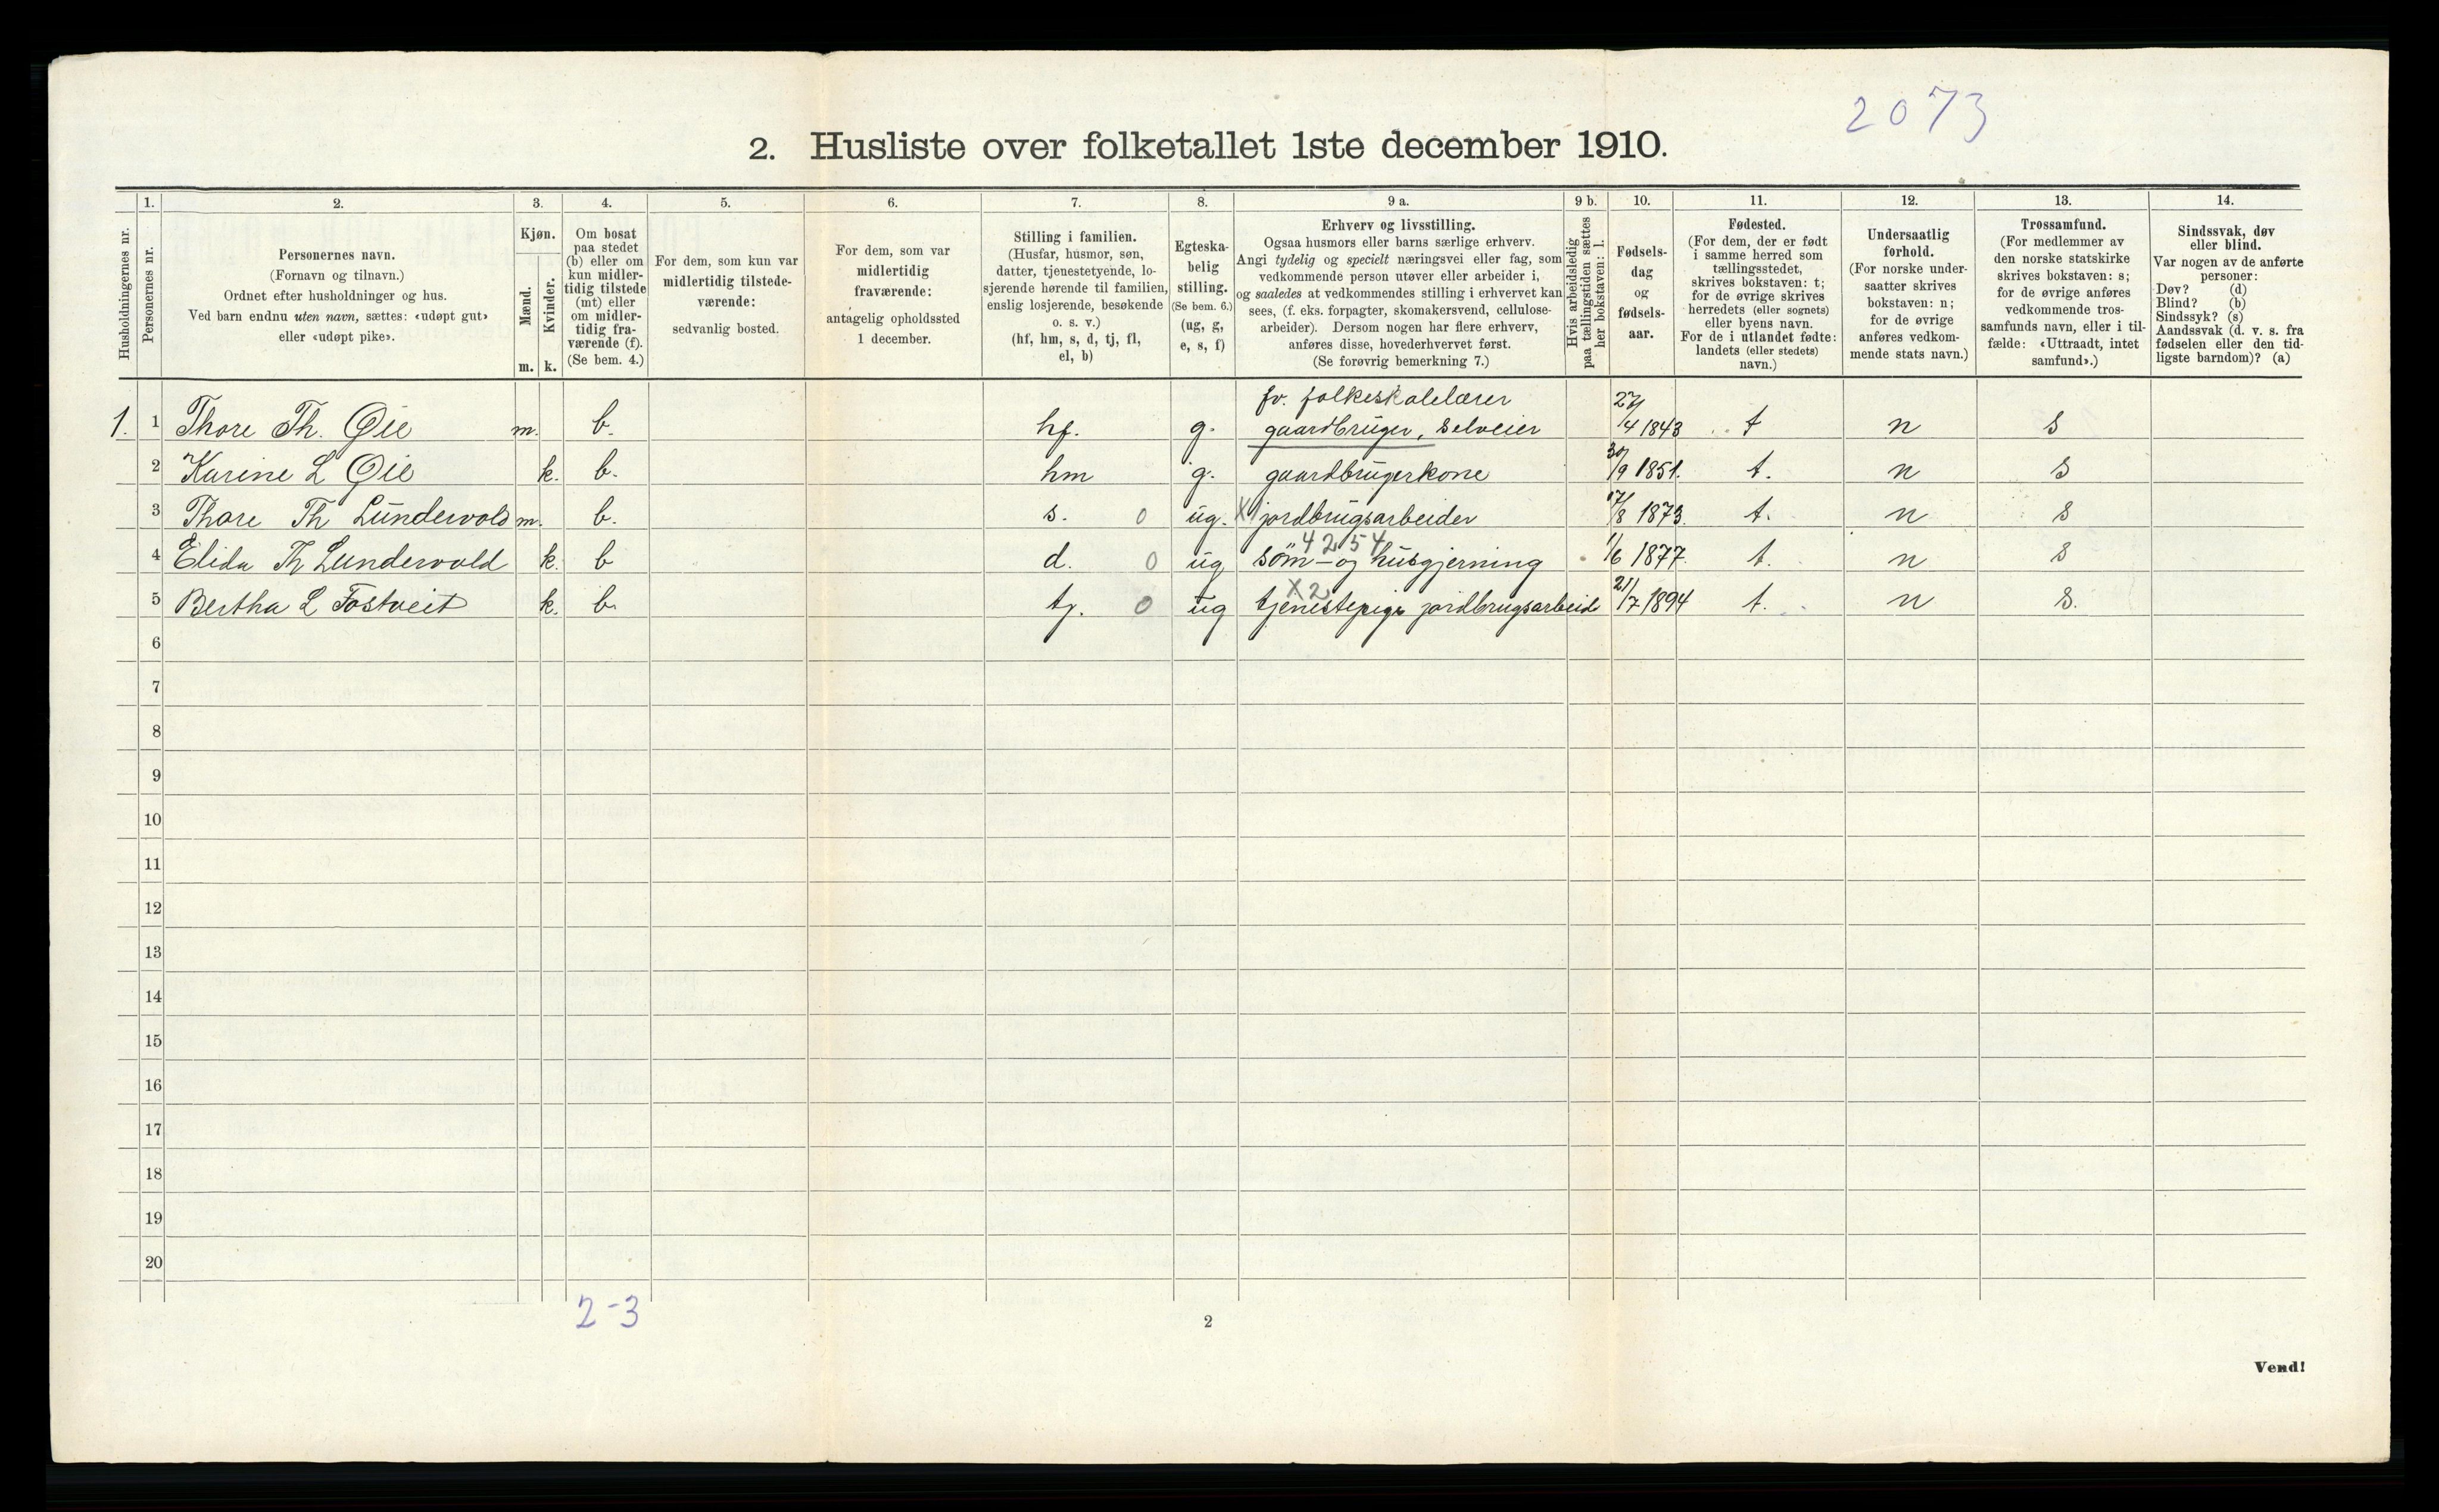 2073
2. Husliste over folketallet 1ste december 1910.
Husholdningernes nr.
1.
Personernes nr.
2.
Personernes navn.
(Fornavn og tilnavn.)
Ordnet efter husholdninger og hus.
Ved barn endnu uten navn, sættes: «udøpt gut»
eller «udøpt pike».
3.
Kjøn.
Mænd.
Kvinder.
m. k.
4.
Om bosat
paa stedet
(b) eller om
kun midler-
tidig tilstede
(mt) eller
om midler-
tidig fra-
værende (f).
(Se bem. 4.)
5.
For dem, som kun var
midlertidig tilstede-
værende:
sedvanlig bosted.
6.
For dem, som var
midlertidig
fraværende:
antagelig opholdssted
1 december.
7.
Stilling i familien.
(Husfar, husmor, søn,
datter, tjenestetyende, lo-
sjerende hørende til familien,
enslig losjerende, besøkende
o. s. v.)
(hf, hm, s, d, tj, fl,
el, b)
8.
Egteska-
belig
stilling.
(Se bem. 6.)
(ug, g,
e, s, f)
9 a.
Erhverv og livsstilling.
Ogsaa husmors eller barns særlige erhverv.
Angi tydelig og specielt næringsvei eller fag, som
vedkommende person utøver eller arbeider i,
og saaledes at vedkommendes stilling i erhvervet kan
sees, (f. eks. forpagter, skomakersvend, cellulose-
arbeider). Dersom nogen har flere erhverv,
anføres disse, hovederhvervet først.
(Se forøvrig bemerkning 7.)
9 b.
Hvis arbeidsledig
paa tællingstiden sættes
her bokstaven: l.
10.
Fødsels-
dag
og
fødsels-
aar.
11.
Fødested.
(For dem, der er født
i samme herred som
tællingsstedet,
skrives bokstaven: t;
for de øvrige skrives
herredets (eller sognets)
eller byens navn.
For de i utlandet fødte:
landets (eller stedets)
navn.)
12.
Undersaatlig
forhold.
(For norske under-
saatter skrives
bokstaven: n;
for de øvrige
anføres vedkom-
mende stats navn.)
13.
Trossamfund.
(For medlemmer av
den norske statskirke
skrives bokstaven: s;
for de øvrige anføres
vedkommende tros-
samfunds navn, eller i til-
fælde: «Uttraadt, intet
samfund».)
14.
Sindssvak, døv
eller blind.
Var nogen av de anførte
personer:
Døv? (d)
Blind? (b)
Sindssyk? (s)
Aandssvak (d. v. s. fra
fødselen eller den tid-
ligste barndom)? (a)
fv. folkeskolelærer
1. 1 Thore Th. Øie m. b. hf. g. gaardbruger, selveier 27/4 1843 t n s
2 Karine L Øie k. b. hm g. gaardbrugerkone 30/9 1851. t. n s
3 Thore Th Lundevold m. b. s. 0 ug. X1 jordbrugsarbeider 17/8 1873. t. n s
4254
4 Elida Th Lundevold k. b d. 0 ug söm- og husgjerning 1/6 1877. t. n s
X2
5 Bertha L Fostveit k. b. tj. 0 ug tjenestepige jordbrugsarbeid 21/7 1894 t. n s.
6
7
8
9
10
11
12
13
14
15
16
17
18
19
20
2-3
2
Vend!